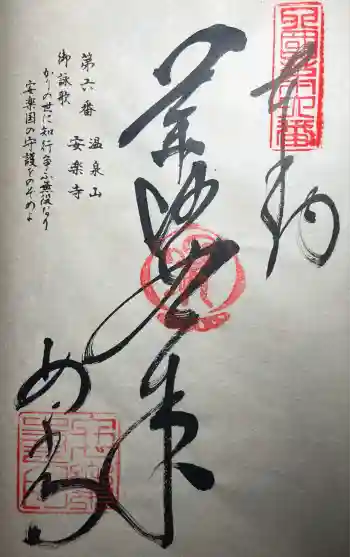 四国第六番
奉納
薬師如来
第六番
温泉山
安楽寺
御詠歌
かりの世に知行争ふ無役なり
安楽国の守護をのぞめよ